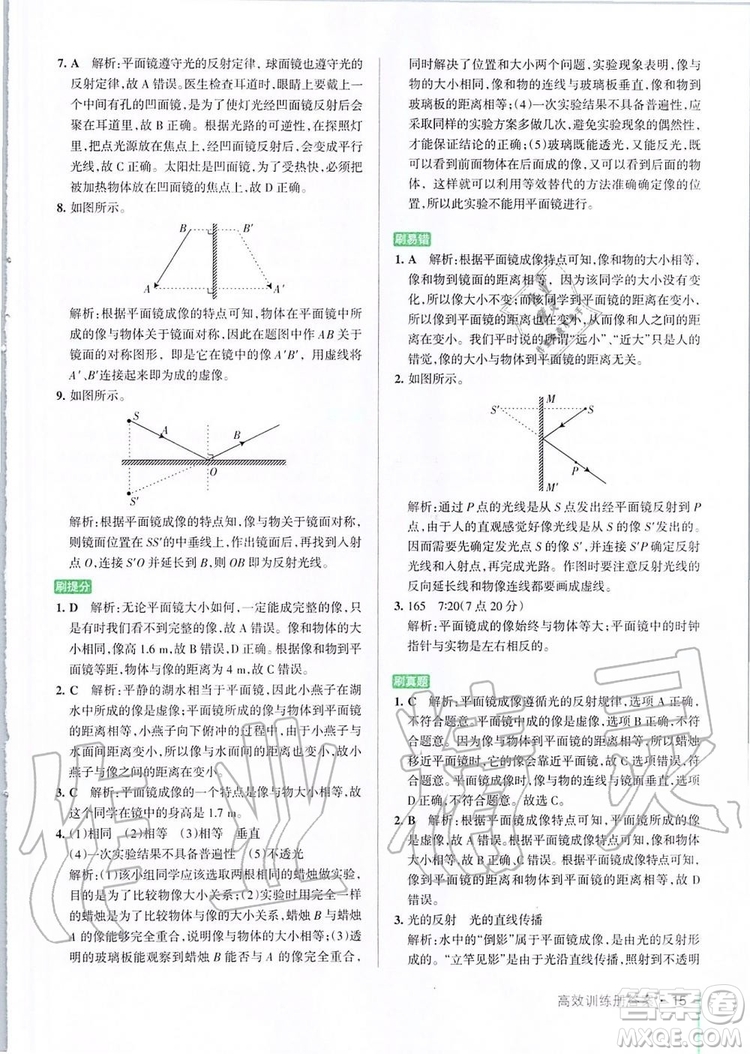 7. A 解析:平面镜遵守光的反射定律，球面镜也遵守光的
反射定律，故 A 错误。医生检查耳道时，眼睛上戴上
一个中间有孔的凹面镜，是为了使灯光经凹面镜反射后会
聚在耳道里，故 B 正确。根据光路的可逆性，在探照灯
里，把光源放在焦点上，经凹面镜反射后，会变成平行
光线，故 C 正确。太阳灶是凹面镜，为了受热快，必须把
被加热物体放在凹面镜的焦点上，故 D 正确。
8. 如图所示。
B B′
A A′
解析:根据平面镜成像的特点可知，物体在平面镜中所
成的像与物体关于镜面对称，因此在题图中作 AB 关于
镜面的对称图形，即可得到物体 AB 的像 A′B′，用虚线将
A′、B′连接起来即可得到所成的虚像。
9. 如图所示。
S A B
O
S′
解析:根据平面镜成像的特点知，像与物关于镜面对称，
则镜面位置在 SS′的中垂线处，作出镜面后，再找到入射
点 O，连接 S′O 并延长到 B，即得到反射光线。
刷提分
1. D 解析:无论平面镜大小如何，一定能成完整的像，只
是有时我们看不完整，故 A 错误。像和物体的大小相
等，像高 1.6 m，故 B 错误，故 C 错误。像和物体到平
面镜等距，像与物体的距离为 4 m，故 D 正确。
2. C 解析:平静的湖水相当于平面镜，因此小燕子在湖
水中所成的像是虚像，平面镜所成的像与物体大小相
等。小燕子向下俯冲的过程中，由于小燕子与
水面间距离变小，像与水面间距离也变小，因此小
燕子与像之间的距离在变小。
3. C 解析:平面镜成像的一个特点是像与物大小相等，故
这个同学在镜中的身高是 1.7 m。
4. (1)相同 (2)大小相等 垂直
(4)一次实验结果不具备普遍性 (5)不透光
解析:(1)该小组同学应该选取两根相同的蜡烛做实验，
目的是为了比较像和物体大小关系;(2)实验时用完全一样
的蜡烛是为了比较物体与像的大小关系，蜡烛 B 与蜡烛
A 的像能够完全重合，说明像与物体的大小相等;(3)透
明的玻璃板能观察到蜡烛 B 与蜡烛 A 的像完全重合，
同时解决了位置和大小两个问题，实验现象表明，像与
物的大小相同，像和物的连线与玻璃板垂直，像和物到
玻璃板的距离相等;(4)一次实验结果不具备普遍性，应
采用同样的实验方案多做几次，避免实验的偶然性，这样
才能保证结论的可靠性;(5)玻璃板既能透光，又能反射
光，这样前面物体在后面成的像，可以通过玻璃板看到像
体，这样就可以利用了等效替代的方法准确定像的位
置，所以此实验不能用平面镜进行。
刷易错
1. A 解析:根据平面镜成像特点可知，像与物的大小相等，
像和物到镜面的距离相等;因为该同学的大小不变，所
以像的大小不变;而该同学到平面镜的距离在变小，所
以像到平面镜的距离也在变小，从而像和人之间的距
离在变小。我们平时见到的所谓“远小”、“近大”只是人的
错觉，像的大小与物体到平面镜的距离无关。
2. 如图所示。
S′ M S
P
M′
解析:通过 P 点的光线是从 S 点发出经平面镜反射到 P
点，由于人的直观感觉光沿直线传播，所以感觉光是从
S′发出的。光线实际的发光点 S 和虚像 S′关于镜面对称，
因而需要确定发光点 S 的虚像 S′，连接 S′和 P 点与镜面
的交点即为反射点。作图时要注意光线用实线，反射光
线的反向延长线和物像连线要画成虚线。
3. 165 7:20(7 点 20 分)
解析:平面镜成的像始终与物体等大;平面镜中的时钟
指针与实物是左右相反的。
刷真题
1. C 解析:平面镜成像遵循光的反射规律，选项 A 正确，
不符合题意。平面镜中成的像是虚像，选项 B 正确，不
符合题意。像的大小始终与物的大小相等，所以将蜡烛
移近平面镜，它的像大小不变，选项 C 错误，符合
题意。平面镜所成的像到平面镜的距离相等，选项
D 正确，不符合题意。
2. B 解析:根据平面镜成像特点可知，平面镜所成的像
是虚像，故 A 错误。根据平面镜成像特点可知，像和物体
大小相等，故 B 正确，C 错误。根据平面镜成像特点可知，
像到平面镜的距离和物体到平面镜的距离相等，故 D
错误。
3. 光的反射 光的直线传播
解析:水中的“倒影”属于平面镜成像，是由光的反射形
成的。“立竿见影”是由于光沿直线传播形成的。
高效训练册答案 · 15
作业精灵
答案圈
MXQE.COM